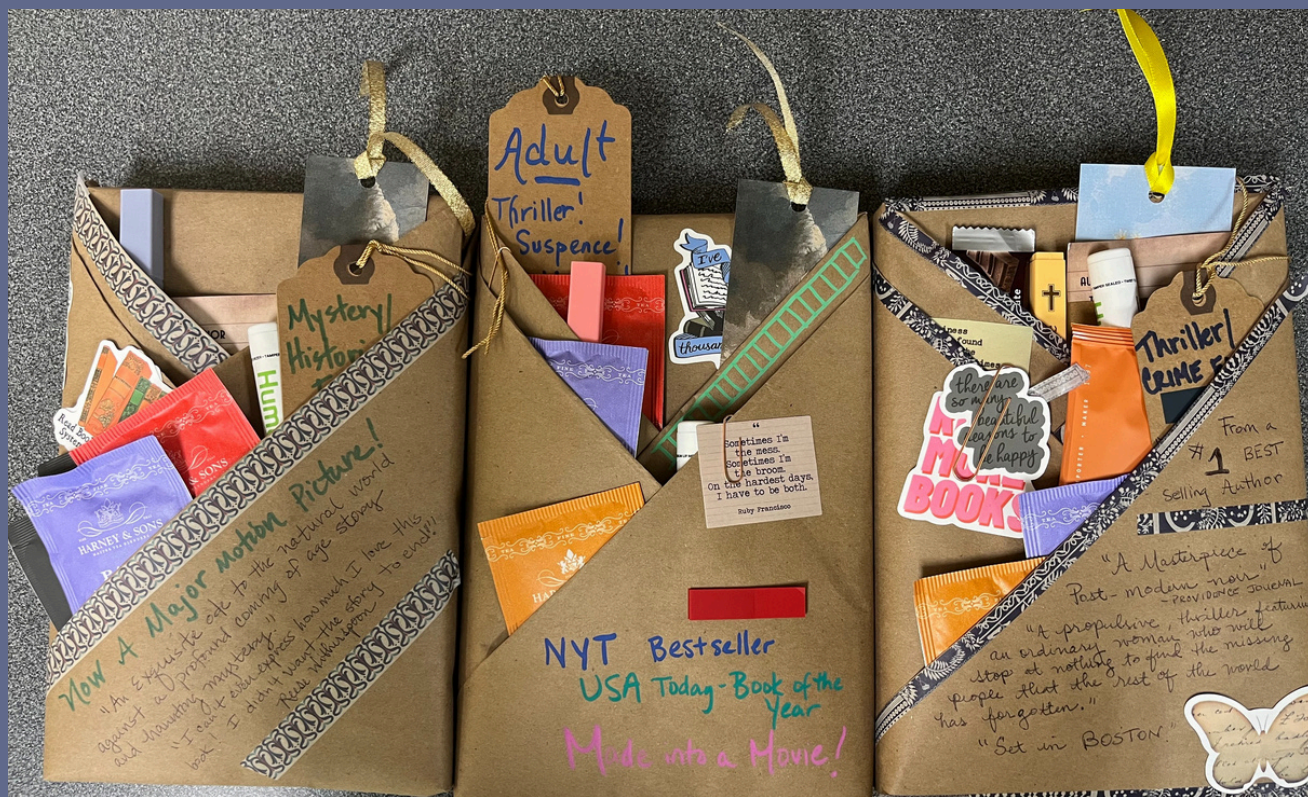 Mystery/
Histori
OR
Hum
Read Boo
System
& SONS
HARNEY & SONS
Now A Major Motion Picture!
"An Exquisite ode to the natural world
against a profound coming of age story
and haunting mystery."
"I can't even express how much I love this
book! I didn't want the story to end!"
Reese Witherspoon
Adult
Thriller!
Suspence!
I've
thousan
FINE TEA
"
Sometimes I'm
the mess.
Sometimes I'm
the broom.
On the hardest days,
I have to be both.
Ruby Francisco
HAR
NYT Bestseller
USA Today-Book of the
Year
Made into a Movie!
AU
iness
found
there are
so many
beautiful
reasons to
be happy
MORE
BOOKS
Thriller/
CRIME F
From a
#1 BEST
Selling Author
"A Masterpiece of
Post-modern noir"
-PROVIDENCE JOURNAL
"A propulsive, thriller featurin
an ordinary woman who will
stop at nothing to find the missing
people that the rest of the world
has forgotten."
"Set in BOSTON."